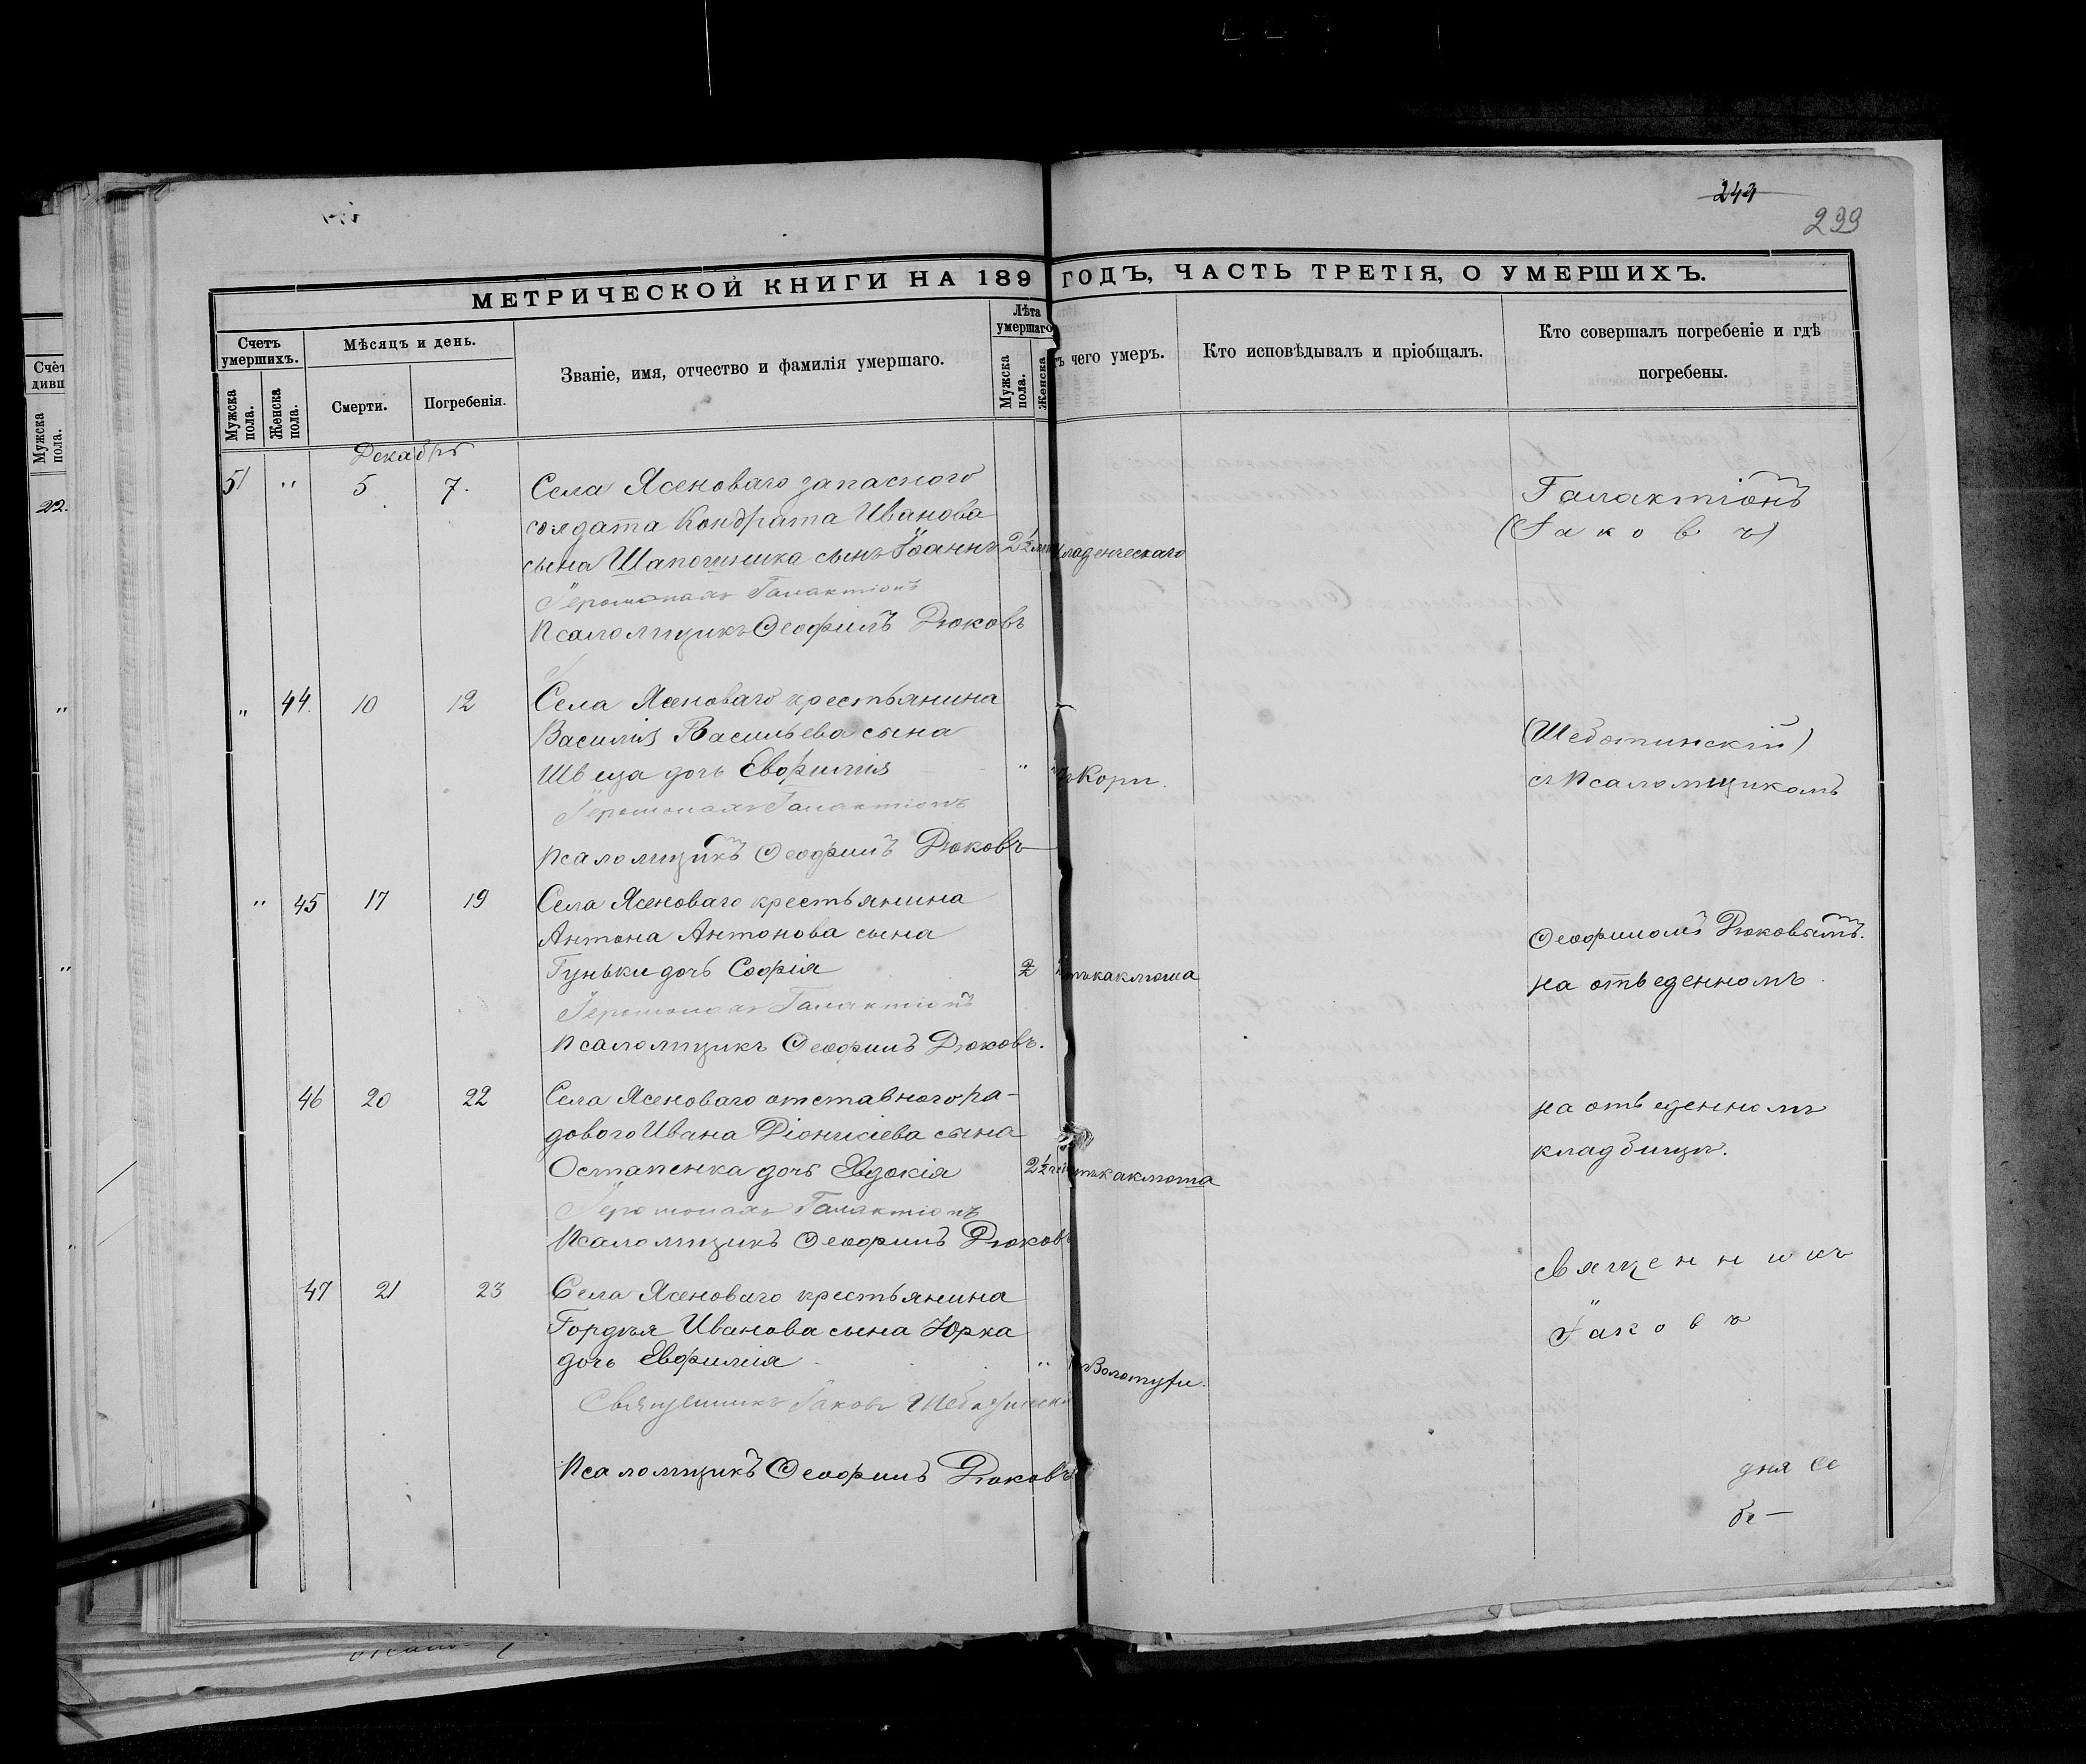 244
299
МЕТРИЧЕСКОЙ КНИГИ НА 189 ГОДЪ, ЧАСТЬ ТРЕТІЯ, О УМЕРШИХЪ.
Счетъ умершихъ.
Мужска пола.
Женска пола.
Мѣсяцъ и день.
Смерти.
Погребенія.
Званіе, имя, отчество и фамилія умершаго.
Лѣта умершаго
Мужска пола.
Женска
ъ чего умеръ.
Кто исповѣдывалъ и пріобщалъ.
Кто совершалъ погребеніе и гдѣ
погребены.
Счет
дивш
Мужска пола.
22.
Декабрь
51 " 5 7. Села Ясеноваго запаснаго
солдата Кондрата Иванова
сына Шапошника сынъ Іоаннъ 2½ младенческаго
Іеромонахъ Галактіонъ
Псаломщикъ Ѳеофилъ Дюковъ
Галактіонъ
(Іаковъ)
" 44. 10 12 Села Ясеноваго крестьянина
Василія Васильева сына
Швеца дочь Евфимія " Кори.
Іеромонахъ Галактіонъ
Псаломщикъ Ѳеофилъ Дюковъ
с Псаломщикомъ
" 45 17 19 Села Ясеноваго крестьянина
Антона Антонова сына
Гуньки дочь Софія 2 какмоша
Іеромонахъ Галактіонъ
Псаломщикъ Ѳеофилъ Дюковъ.
Ѳеофиломъ Дюковымъ.
на отведенномъ
46 20 22 Села Ясеноваго отставного ря-
дового Ивана Діонисіева сына
Остапенка дочь Евдокія 2½
Іеромонахъ Галактіонъ
Псаломщикъ Ѳеофилъ Дюковъ
на отведенномъ
кладбищѣ.
47 21 23 Села Ясеноваго крестьянина
Гордѣя Иванова сына Юрка
дочь Евфимія "
Священникъ Іаковъ
Псаломщикъ Ѳеофилъ Дюковъ
священникъ
Іаковъ